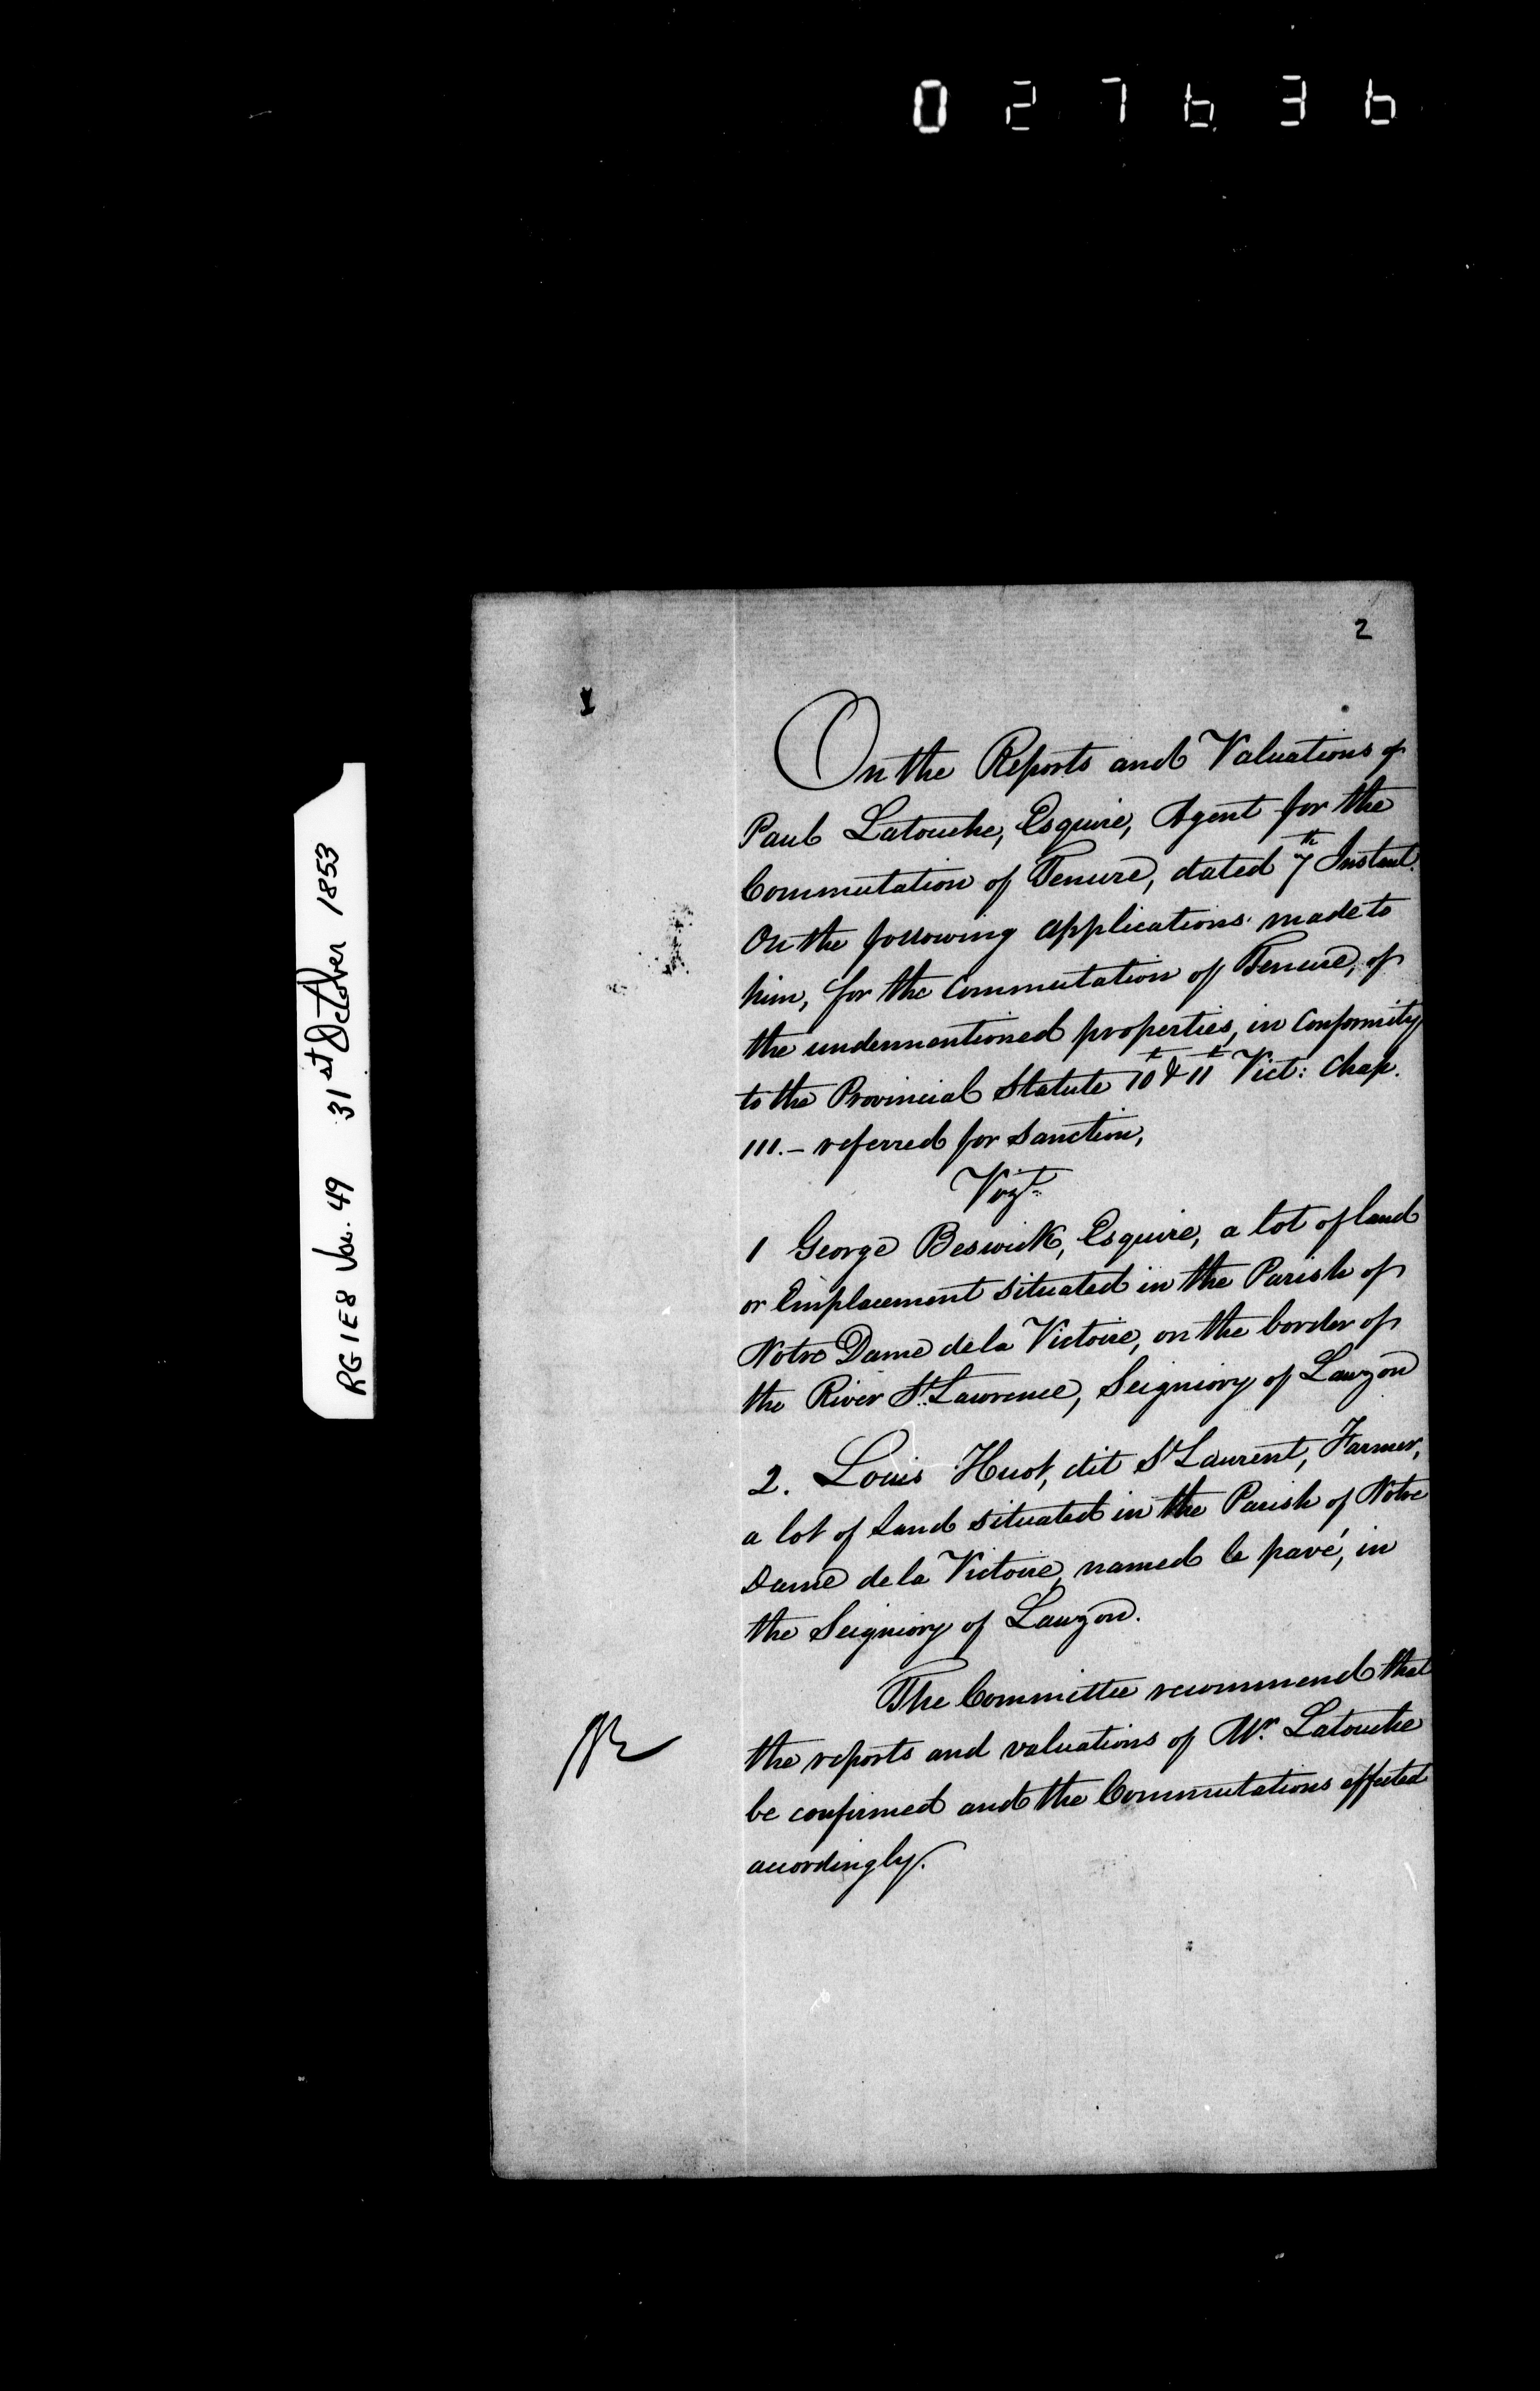 027636
RG 1 E8 Vol. 49 31st October 1853
2
1
On the Reports and Valuations of
Paul Latouche, Esquire, Agent for the
Commutation of Tenure, dated 7th Instant.
On the following applications made to
him, for the Commutation of Tenure, of
the undermentioned properties, in conformity
to the Provincial Statute 10th & 11th Vict: Chap.
111. – referred for sanction,
Vizt:
1 George Beswick, Esquire, a lot of land
or Emplacement situated in the Parish of
Notre Dame de la Victoire, on the border of
the River St. Lawrence, Seigniory of Lauzon
2. Louis Huot, dit St Laurent, Farmer,
a lot of Land situated in the Parish of Notre
Dame de la Victoire, named le pavé, in
the Seigniory of Lauzon.
The Committee recommend that
the reports and valuations of Mr. Latouche
be confirmed and the Commutations effected
accordingly.